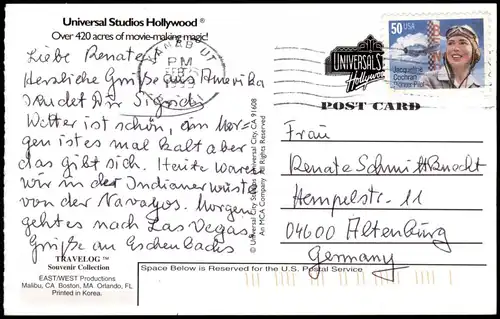 Universal Studios Hollywood®
Over 420 acres of movie-making magic!
KANAB UT
PM
1999
Liebe Renate,
Herzliche Grüße aus Amerika
sendet Dir Sigrid.
Wetter ist schön, am Mor-
gen ist es mal kalt aber
das gibt sich. Heute waren
wir in der Indianerwüste
von der Navayos. Morgen
geht es nach Las Vegas.
Grüße an Eschenbachs
TRAVELOG™
Souvenir Collection
EAST/WEST Productions
Malibu, CA Boston, MA Orlando, FL
Printed in Korea.
© Universal City Studios Universal City, CA 91608
An MCA Company All Rights Reserved
UNIVERSAL
Hollywood
50 USA
Jacqueline
Cochran
Pioneer Pilot
POST CARD
Frau
Renate Schmidt-Knecht
Hempelstr. 11
04600 Altenburg
Germany
Space Below is Reserved for the U.S. Postal Service